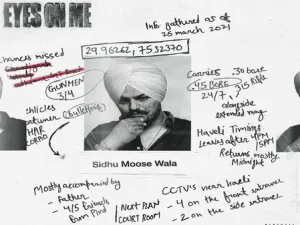 EYES ON ME
Info gathered as of
25 march 2021
chances missed
29.96262, 75.32370
GUNMEN
3/4
(bulletproof)
vehicles
Carries .30 bore
.45 BORE .315 Rifle
24/7
alongside
extended mag
Haveli Timings
Leaves after 4PM
/5PM
Returns mostly
Midnight
Sidhu Moose Wala
Mostly accompanied by
- Father
- 4/5 friends
from Pind
NEXT PLAN
COURT ROOM
CCTV's near haveli
- 4 on the front entrance
- 2 on the side entrance